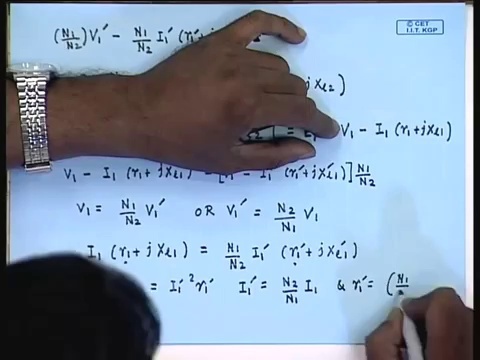 © CET
I.I.T. KGP
(N1/N2) V1' - N1/N2 I1' (r1' + j
jxl2)
V1 - I1 (r1 + jxl1)
V1 - I1 (r1 + jxl1) = [V1' - I1' (r1' + jxl1')] N1/N2
V1 = N1/N2 V1'   OR V1' = N2/N1 V1
I1 (r1 + jxl1) = N1/N2 I1' (r1' + jxl1')
= I1'² r1'   I1' = N2/N1 I1   & r1' = (N1